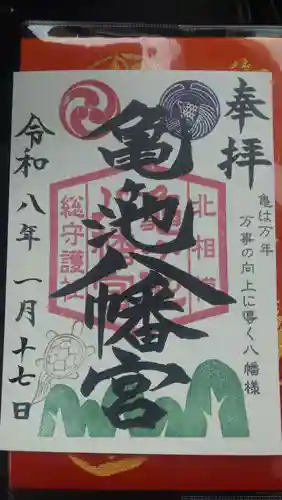 奉拝
亀は万年
万事の向上に導く八幡様
亀ヶ池八幡宮
北相模
総守護社
令和八年一月十七日